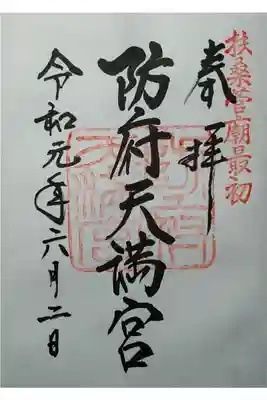 扶桑菅廟最初
奉拝
防府天満宮
令和元年六月二日